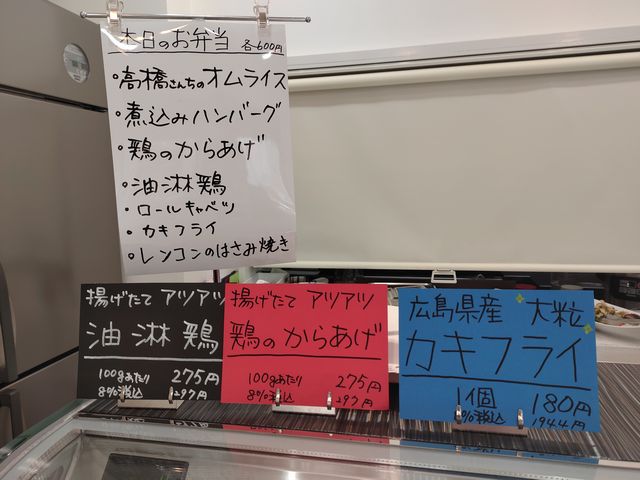 本日のお弁当 各600円
・高橋さんちのオムライス
・煮込みハンバーグ
・鶏のからあげ
・油淋鶏
・ロールキャベツ
・カキフライ
・レンコンのはさみ焼き
揚げたて アツアツ
油淋鶏
100gあたり 275円
8%税込 297円
揚げたて アツアツ
鶏のからあげ
100gあたり 275円
8%税込 297円
広島県産 大粒
カキフライ
1個 180円
%税込 194.4円